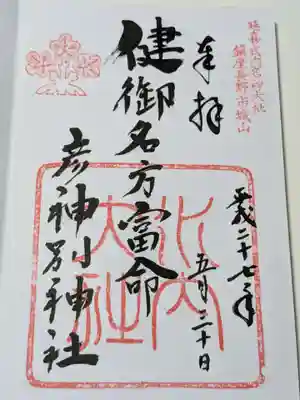 延喜式内名神大社
鎮座長野市城山
奉拝
平成二十七年
五月二十日
健御名方富命
彦神別神社
水内
大社